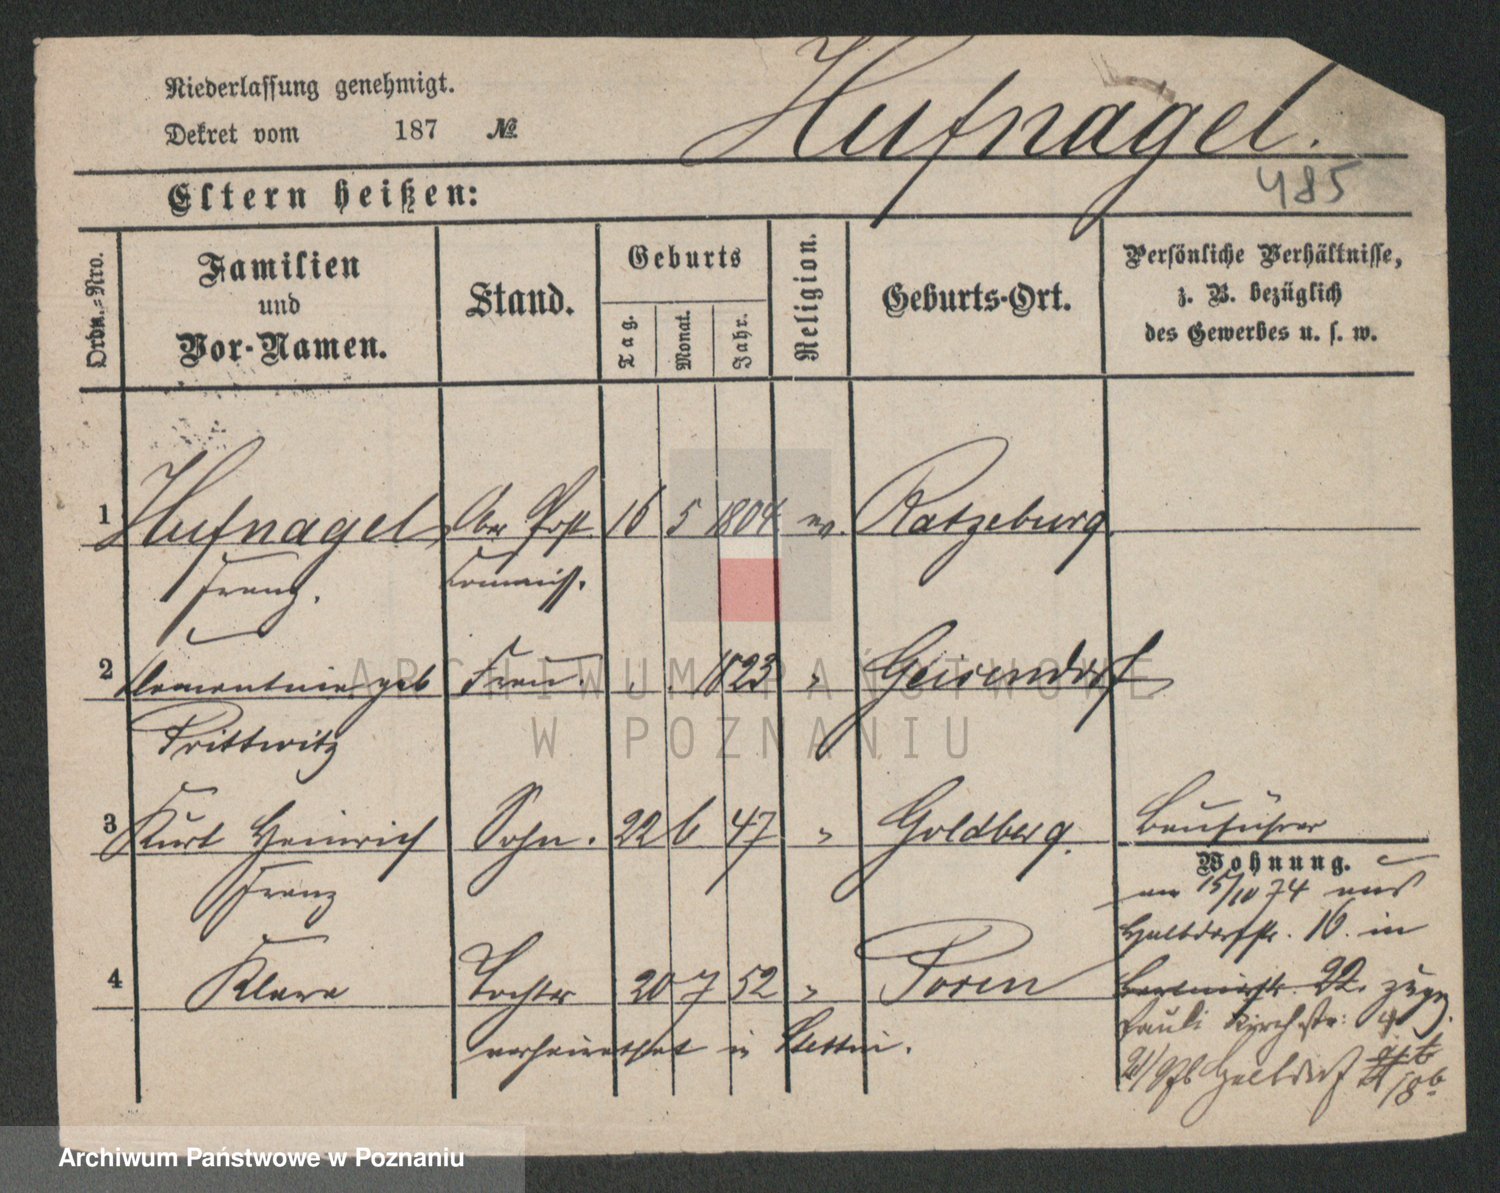 Niederlassung genehmigt.
Dekret vom 187 №
Hufnagel.
485
Eltern heißen:
Ordn.-Nro.
Familien und Vor-Namen.
Stand.
Geburts
Tag.
Monat.
Jahr.
Religion.
Geburts-Ort.
Persönliche Verhältnisse,
z. B. bezüglich
des Gewerbes u. s. w.
1 Hufnagel Ober Post 16 5 1804 ev. Ratzeburg
Franz. Commiss.
2 geb Frau. 1823 " Geisendorf
Prittwitz
3 Kurt Heinrich Sohn. 22 6 47 " Goldberg. Bauführer
Franz
Wohnung.
am 15/10 74 aus
Halbdorfstr. 16. in
4 Klara Tochter 20 7 52 " Posen
22. zugez.
verheirathet in Stettin.
Pauli Kirchstr: 4
Halbdorf
ARCHIWUM PAŃSTWOWE
W POZNANIU
Archiwum Państwowe w Poznaniu